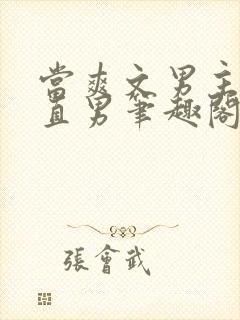 當爽文男主
直男筆趣閣
張會武